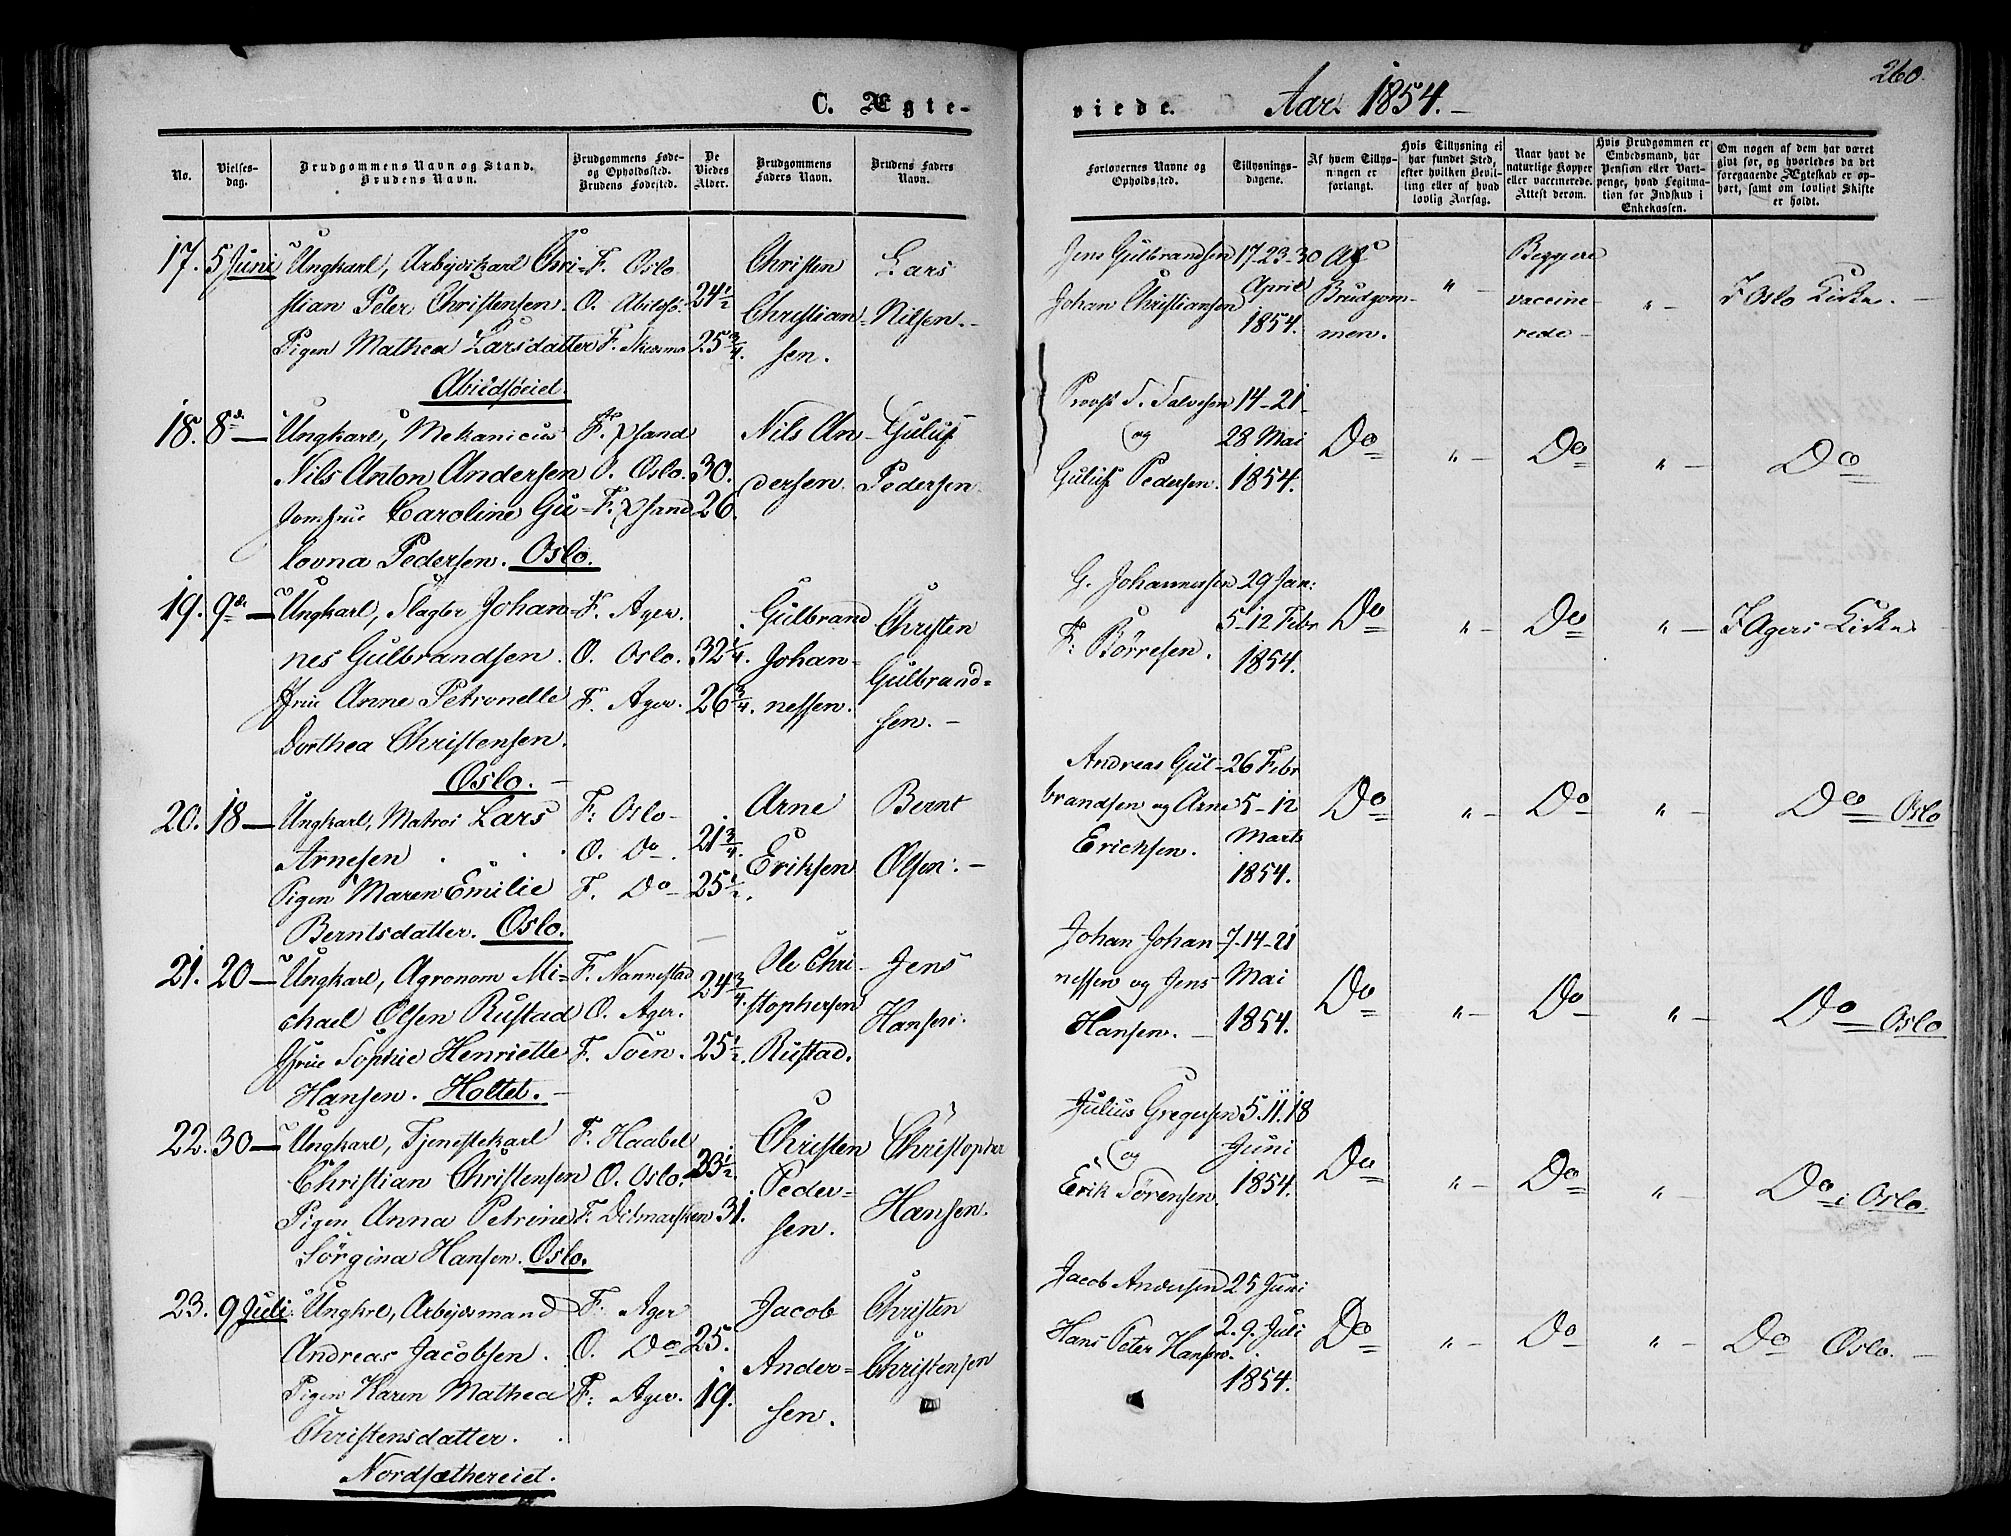 260.
C. Ægte-
viede. Aar 1854.-
No.
Vielses-
dag.
Brudgommens Navn og Stand.
Brudens Navn.
Brudgommens Føde-
og Opholdssted.
Brudens Fødested.
De
Viedes
Alder.
Brudgommens
Faders Navn.
Brudens Faders
Navn.
Forlovernes Navne og
Opholdssted.
Tillysnings-
dagene.
Af hvem Tillys-
ningen er
forlangt.
Hvis Tillysning ei
har fundet Sted,
efter hvilken Bevil-
ling eller af hvad
lovlig Aarsag.
Naar havt de
naturlige Kopper
eller vaccinerede.
Attest derom.
Hvis Brudgommen er
Embedsmand, har
Pension eller Vart-
penge, hvad Legitima-
tion for Indskud i
Enkekassen.
Om nogen af dem har været
givt før, og hvorledes da det
foregaaende Ægteskab er op-
hørt, samt om lovligt Skifte
er holdt.
17. 5 Juni Ungkarl, Arbejdskarl Chri- F. Oslo Christen Lars
stian Peter Christensen. O. Abildsö. 24½ Christian- Nilsen.-
Pigen Mathea Larsdatter F. 25¾. sen.
Abildsöeiet.
Jens Gulbrandsen 17-23-30 Af Beggere
Johan Christiansen April Brudgom- " - vaccine- " - I Oslo Kirke. -
1854. men. rede -
18. 8de - Ungkarl, Mekanicus F. Xsand Nils An- Guluf
Nils Anton Andersen O. Oslo. 30. dersen. Pedersen.
Jomfrue Caroline Gu- F. Xsand 26.
lovna Pedersen. Oslo.
Provst S. Salvesen 14-21-
og 28 Mai Do " - Do " - Do
Guluf Pedersen. 1854.
19. 9de - Ungkarl, Slagter Johan- F. Ager. Gulbrand Christen
nes Gulbrandsen. O. Oslo. 32¼. Johan- Gulbrand-
Jfrue Anne Petronelle F. Ager. 26¾. nessen. sen. -
Dorthea Christensen.
Oslo. -
G. Johannessen 29 Jan:
5-12 Febr Do " - Do " - I Agers Kirke
F: Börresen. 1854.
20. 18 - Ungkarl, Matros Lars F: Oslo - Arne Bernt
Arnesen . . . O. Do -. 21¾. Eriksen Olsen: -
Pigen Maren Emilie F. Do - 25½.
Berntsdatter. Oslo.
Andreas Gul- 26 Febr
brandsen og Arne 5-12 Do " - Do " - Do Oslo
Ericksen. Marts
1854.
21. 20 - Ungkarl, Agronom Mi- F. Nannestad Ole Chri- Jens
chael Olsen Rustad O. Ager. 24¾. stophersen Hansen.
Jfrue Sophie Henriette F. Soen. 25½. Rustad.
Hansen. Holtet. -
Johan Johan- 7-14-21
nessen og Jens Mai Do " - Do " - Do - Oslo
Hansen. - 1854.
22. 30 - Ungkarl, Tjenestekarl F. Haabel Christen Christopher
Christian Christensen O. Oslo. 33½ Peder- Hansen.
Pigen Anna Petrine F. Ditmarsken 31. sen.
Sörgina Hansen. Oslo.
Julius Gregersen 5.11.18
og Juni Do " - Do " - Do i Oslo
Erik Sörensen. 1854.
23. 9 Juli. Ungkrl, Arbejdsmand F. Ager Jacob Christen
Andreas Jacobsen. O. Do 25. Ander- Christensen
Pigen Karen Mathea F: Ager. 19. sen.
Christensdatter.
Nordsæthereiet.
Jacob Andersen 25 Juni
Hans Peter Hansen. 2.9. Juli Do " - Do " - Do Oslo. -
1854.